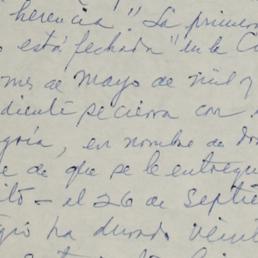 herencia". La primera
está fechada "en la Ci
mes de Mayo de mil y
diente se cierra con
gría, en nombre de do
e de que se le entregu
ito — al 26 de Septie
gio ha durado veint